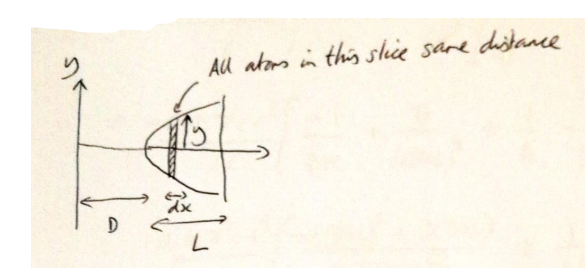 y
All atoms in this slice same distance
y
dx
D
L